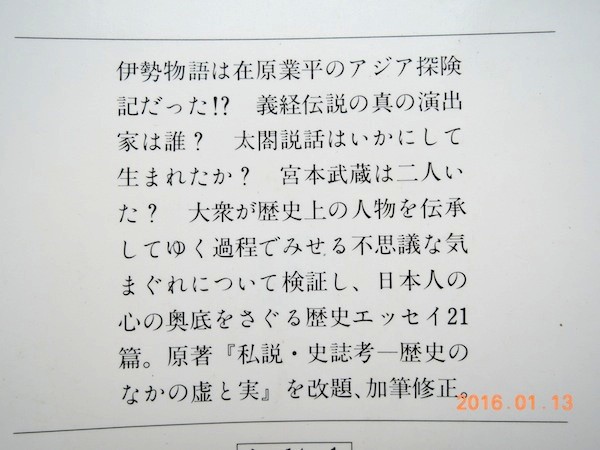 伊勢物語は在原業平のアジア探険
記だった!?　義経伝説の真の演出
家は誰？　太閤説話はいかにして
生まれたか？　宮本武蔵は二人い
た？　大衆が歴史上の人物を伝承
してゆく過程でみせる不思議な気
まぐれについて検証し、日本人の
心の奥底をさぐる歴史エッセイ21
篇。原著『私説・史誌考―歴史の
なかの虚と実』を改題、加筆修正。
2016.01.13